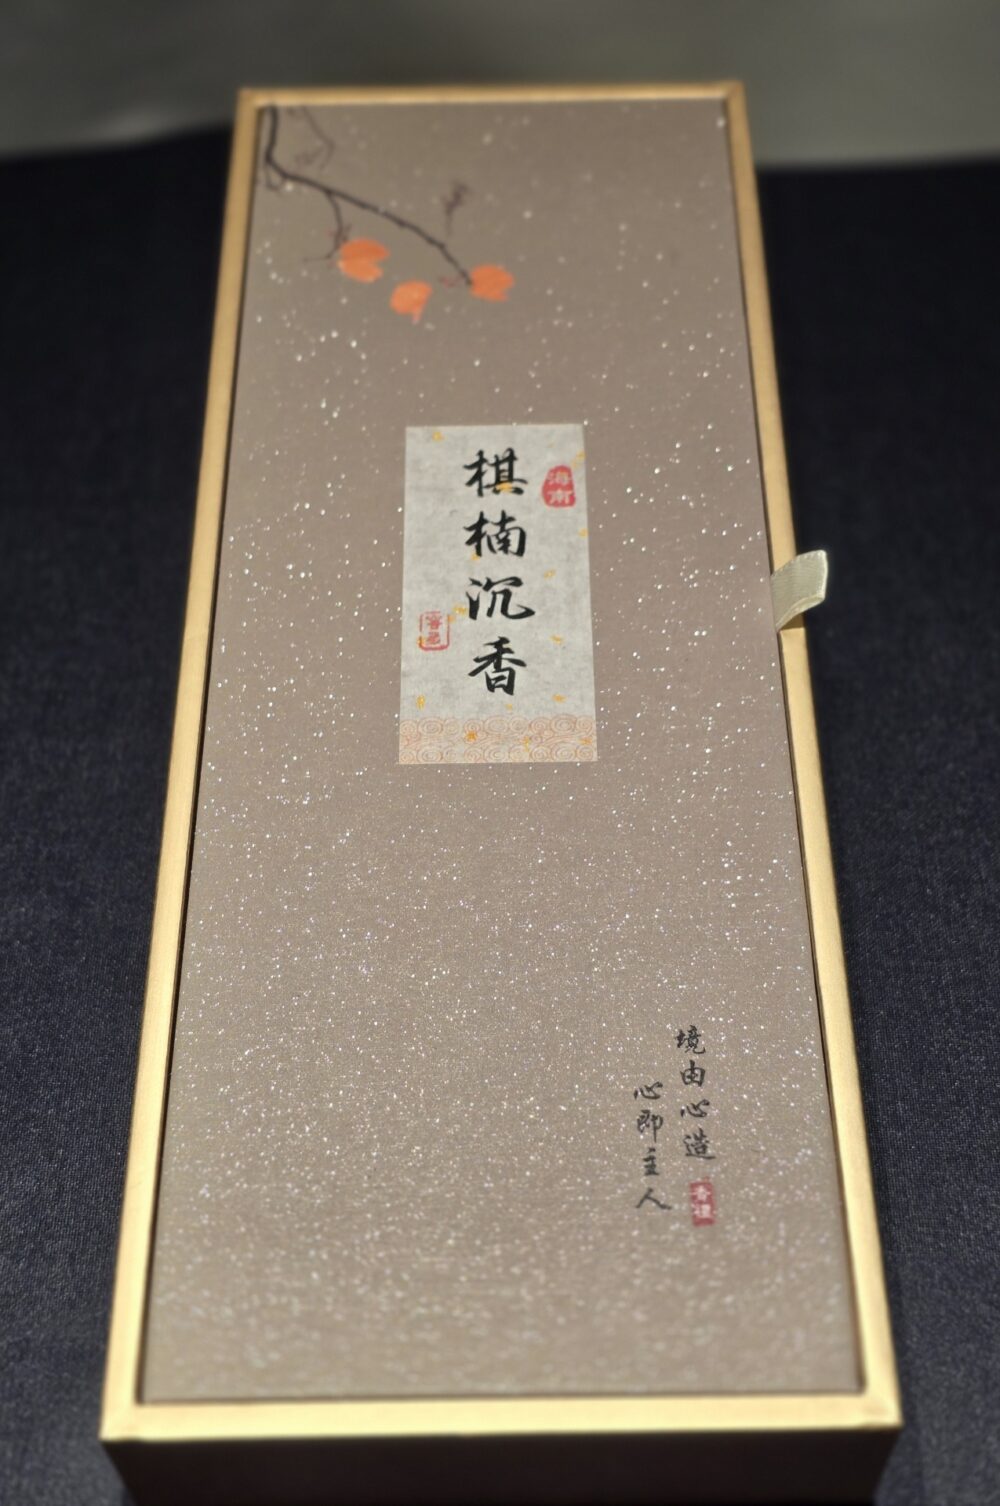 海南
棋楠沉香
境由心造
心即主人
香禮